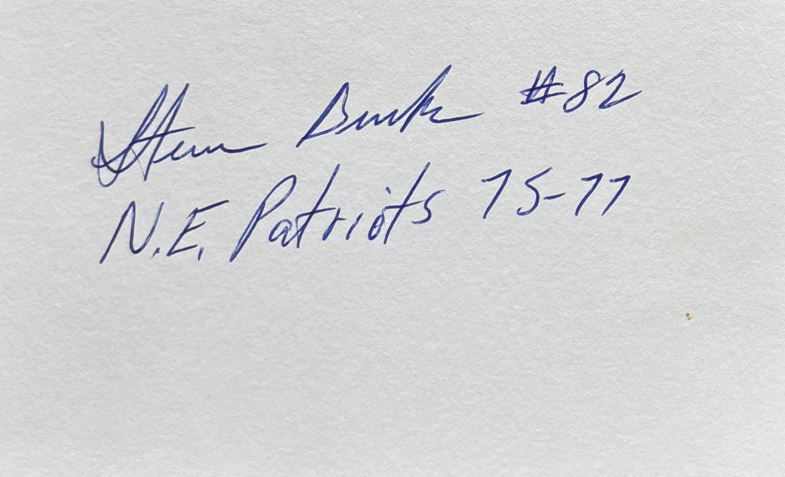 Steve Burks #82
N.E. Patriots 75-77